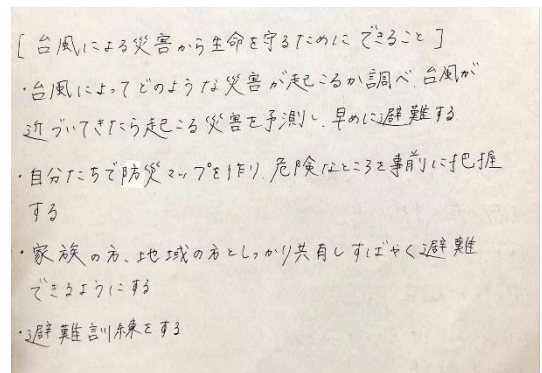 [台風による災害から生命を守るためにできること]
・台風によってどのような災害が起こるか調べ、台風が
近づいてきたら起こる災害を予測し、早めに避難する
・自分たちで防災マップを作り、危険なところを事前に把握
する
・家族の方、地域の方としっかり共有しすばやく避難
できるようにする
・避難訓練をする